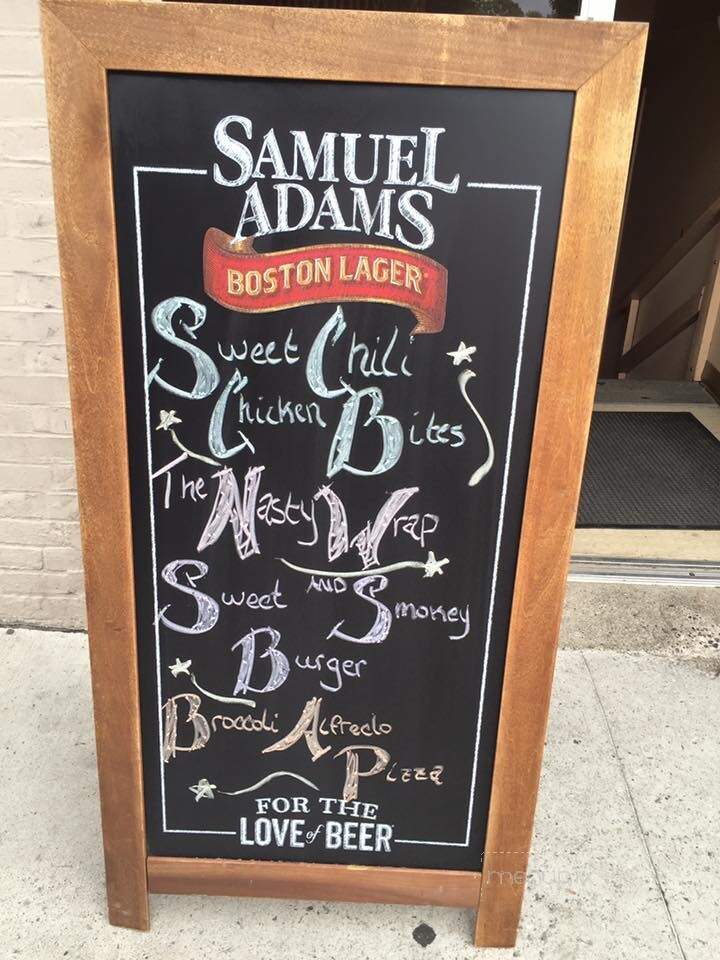 SAMUEL
ADAMS
BOSTON LAGER
Sweet Chili
Chicken Bites
The Nasty Wrap
Sweet AND Smokey
Burger
Broccoli Alfredo
Pizza
FOR THE
LOVE of BEER